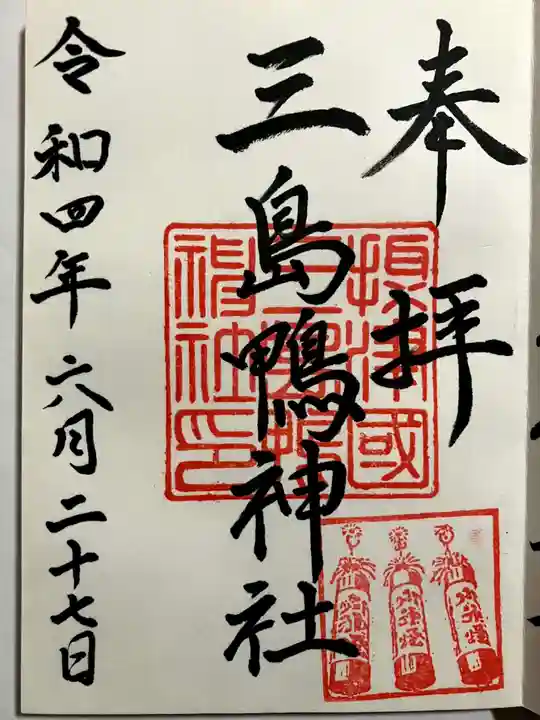 奉拝
三島鴨神社
令和四年六月二十七日
摂津國
神社印